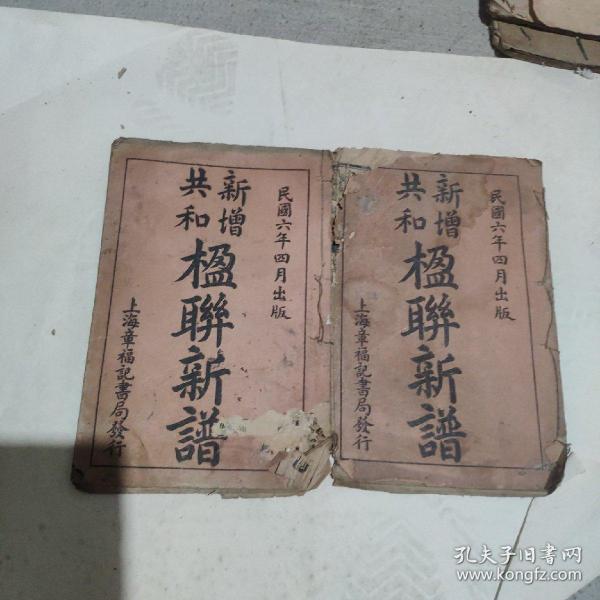 民國六年四月出版
新增
共和
楹聯新譜
上海章福記書局發行
民國六年四月出版
新增
共和
楹聯新譜
上海章福記書局發行
孔夫子旧书网
www.kongfz.com